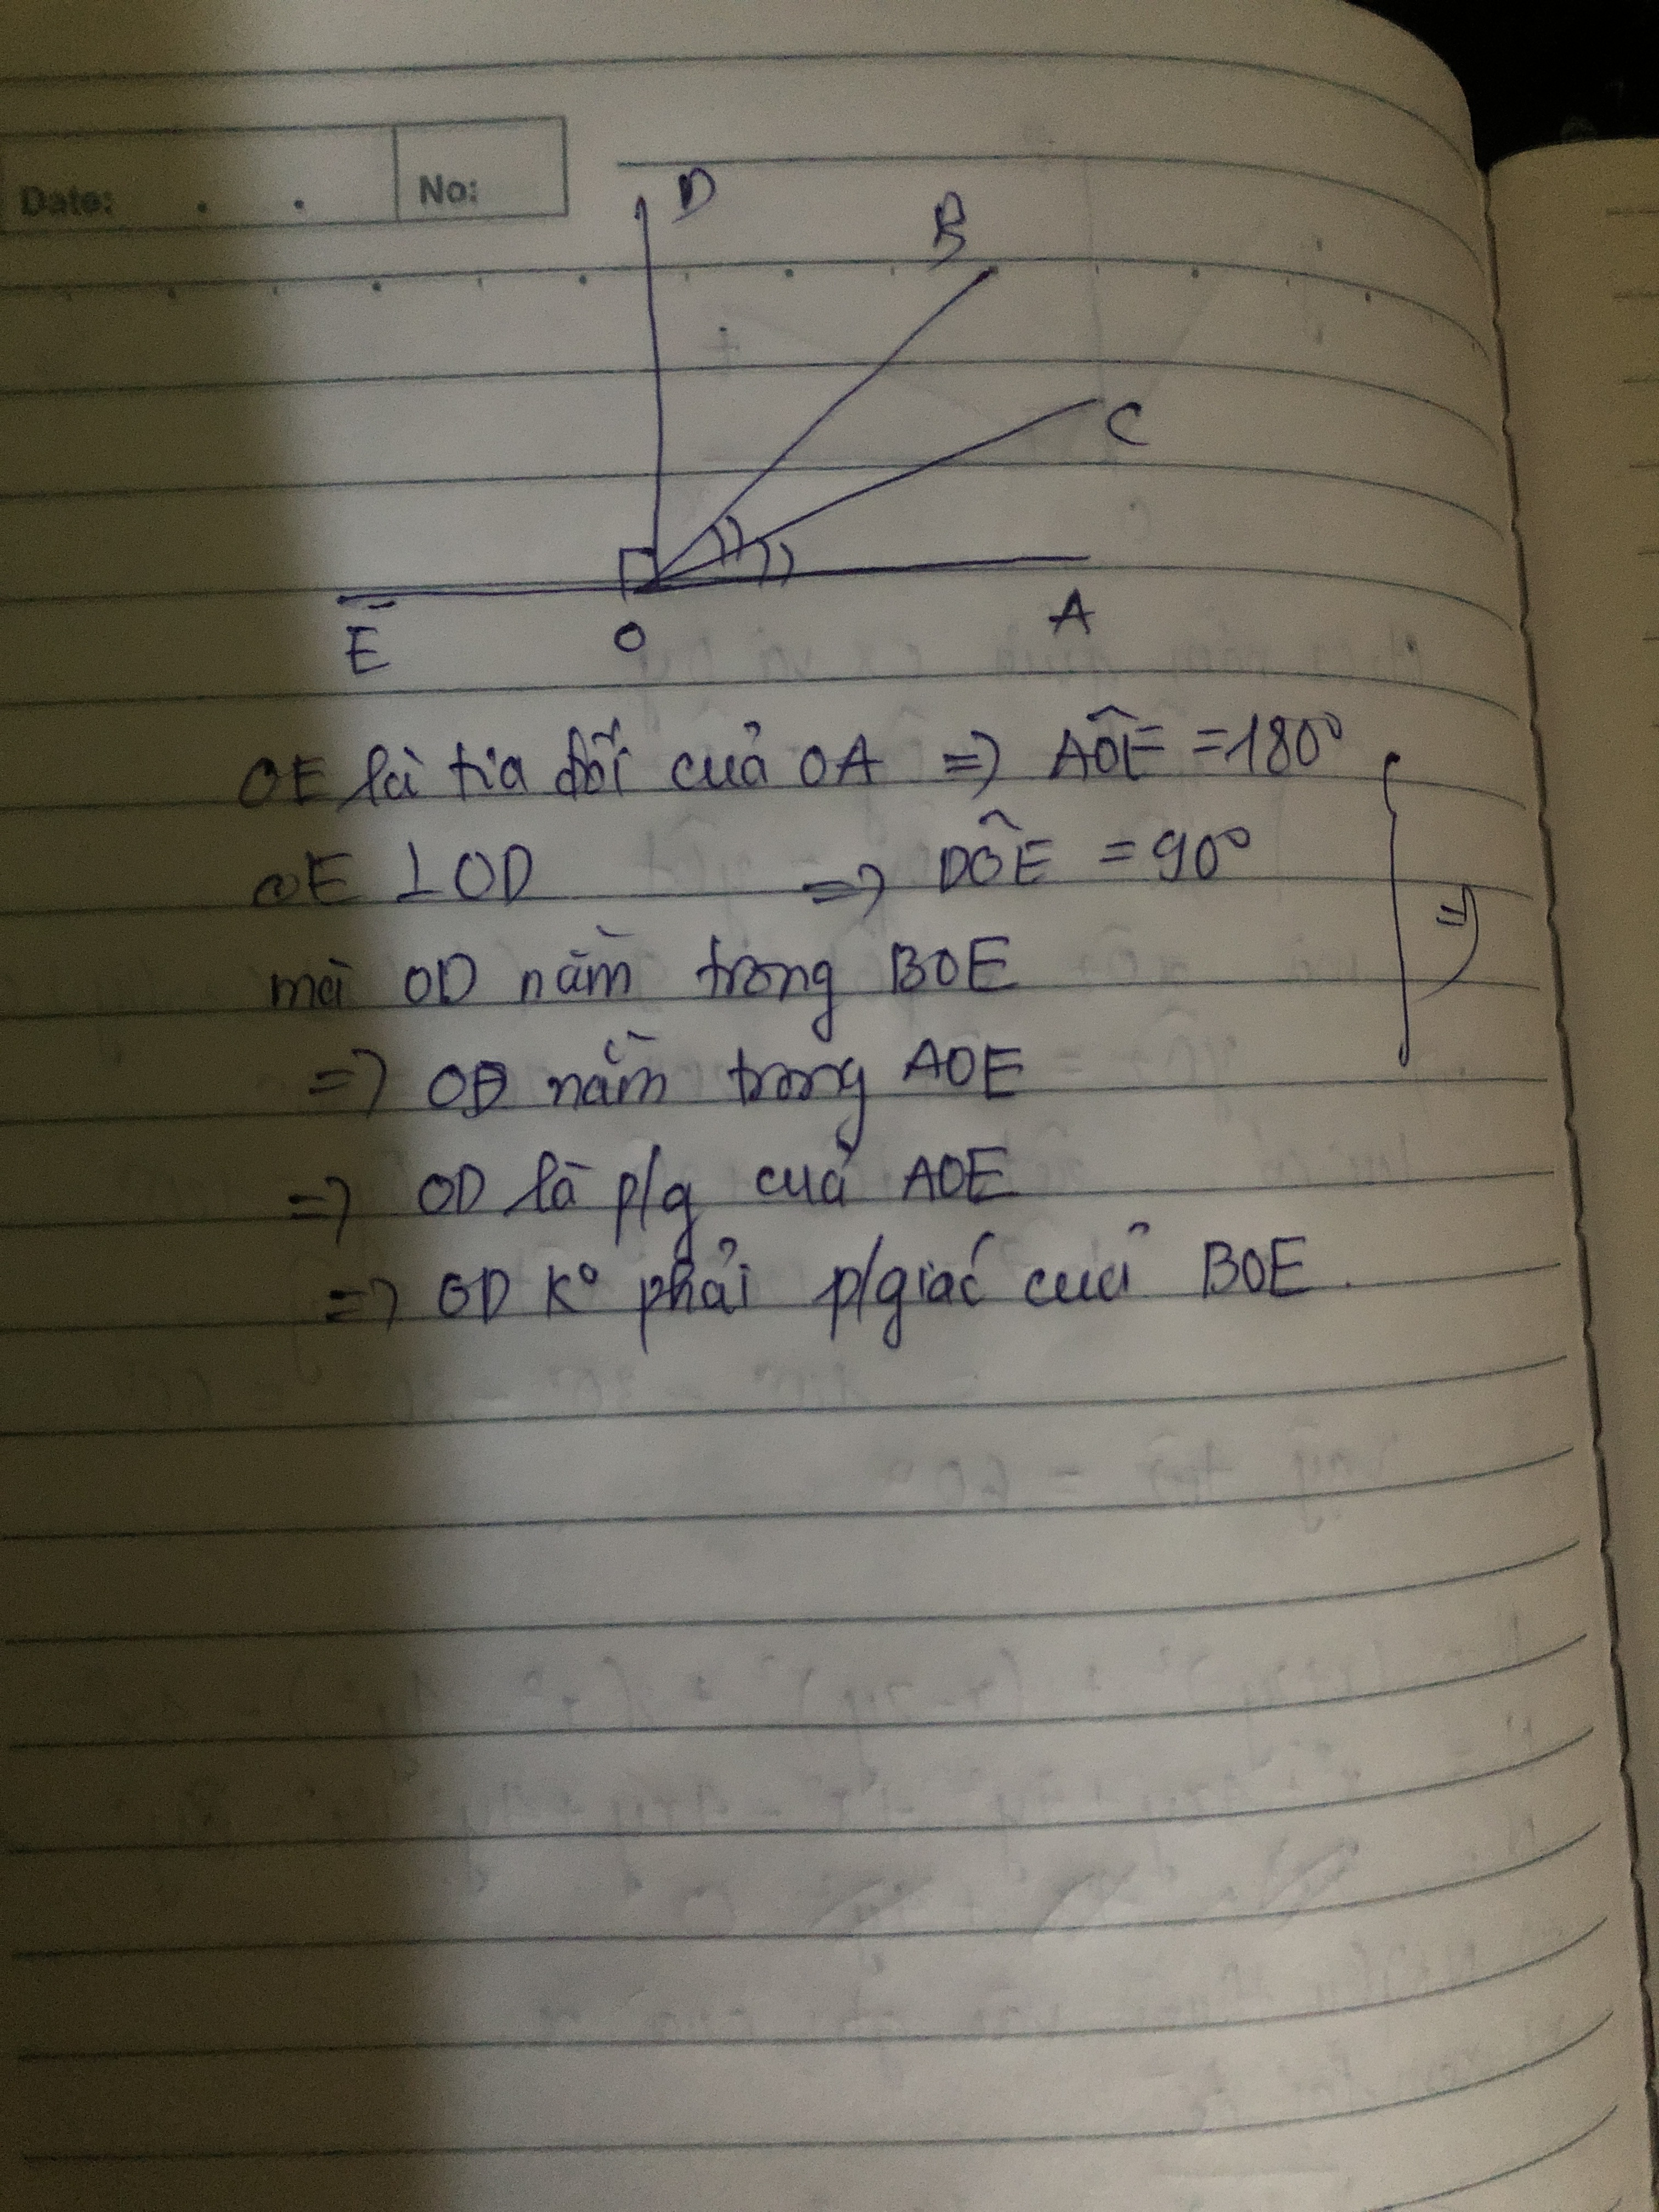 Date:
No:
D
B
C
E
O
A
OE là tia đối của OA => AÔE = 180°
OE ⊥ OD => DÔE = 90°
=>
mà OD nằm trong BOE
=> OD nằm trong AOE
=> OD là p/g của AOE
=> OD K° phải p/giác của BOE.